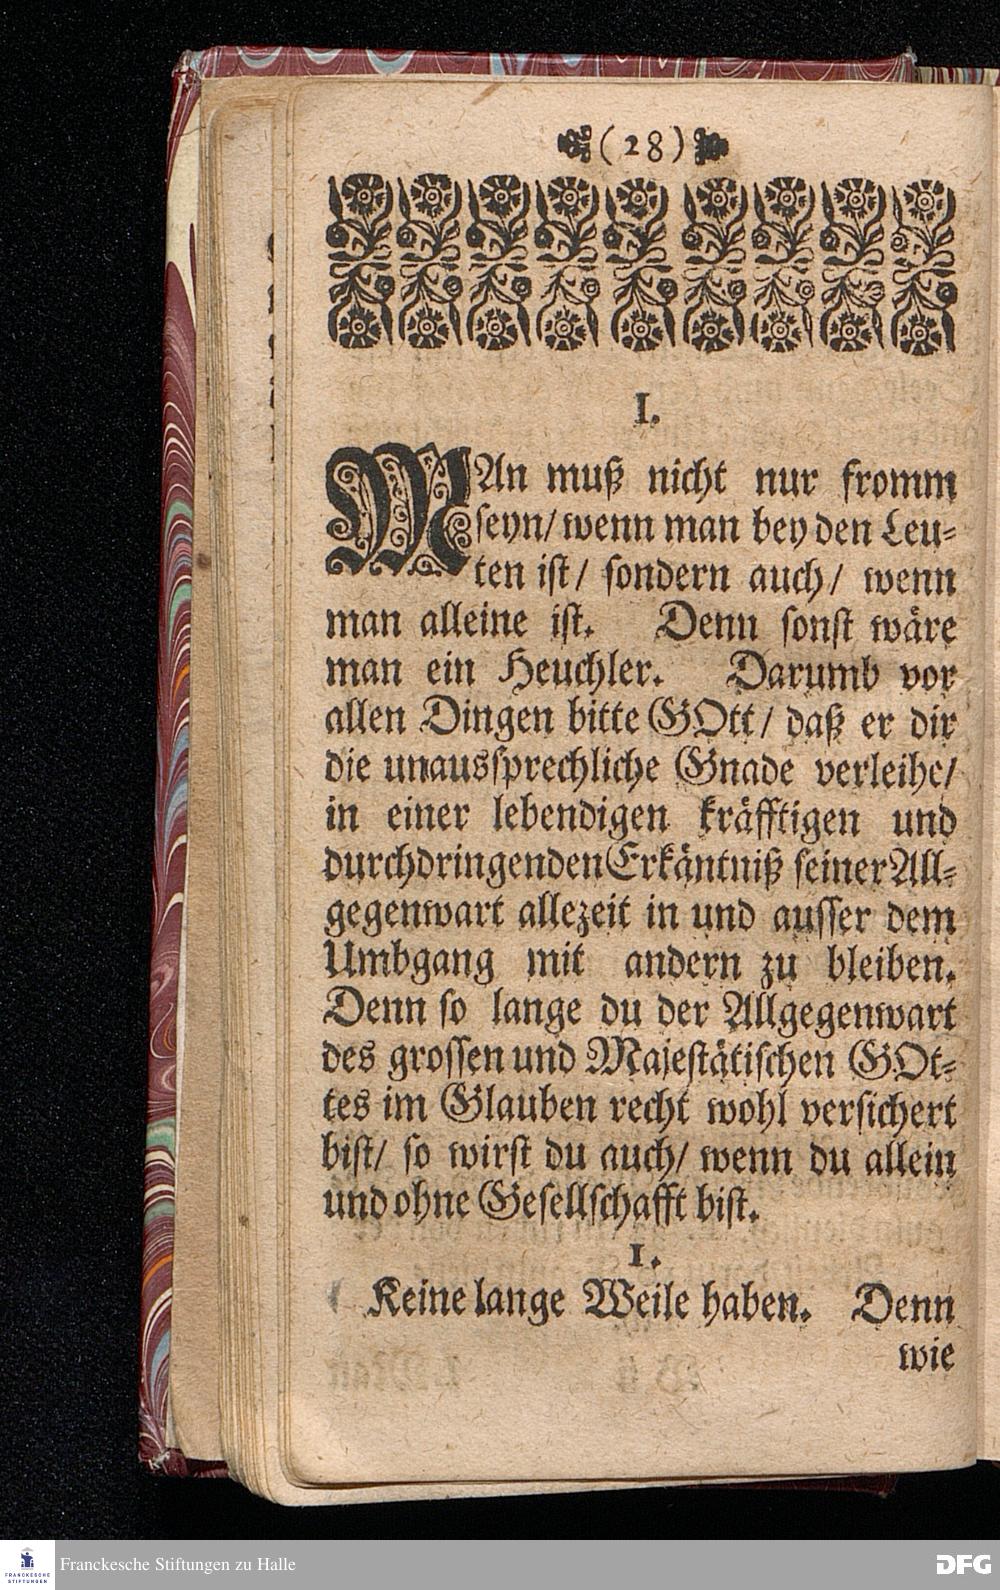 (28)
I.
MAn muß nicht nur fromm
seyn/ wenn man bey den Leu-
ten ist/ sondern auch/ wenn
man alleine ist. Denn sonst wäre
man ein Heuchler. Darumb vor
allen Dingen bitte GOtt/ daß er dir
die unaussprechliche Gnade verleihe/
in einer lebendigen kräfftigen und
durchdringenden Erkäntniß seiner All-
gegenwart allezeit in und ausser dem
Umbgang mit andern zu bleiben.
Denn so lange du der Allgegenwart
des grossen und Majestätischen GOt-
tes im Glauben recht wohl versichert
bist/ so wirst du auch/ wenn du allein
und ohne Gesellschafft bist.
1.
Keine lange Weile haben. Denn
wie
FRANCKESCHE
STIFTUNGEN
Franckesche Stiftungen zu Halle
DFG